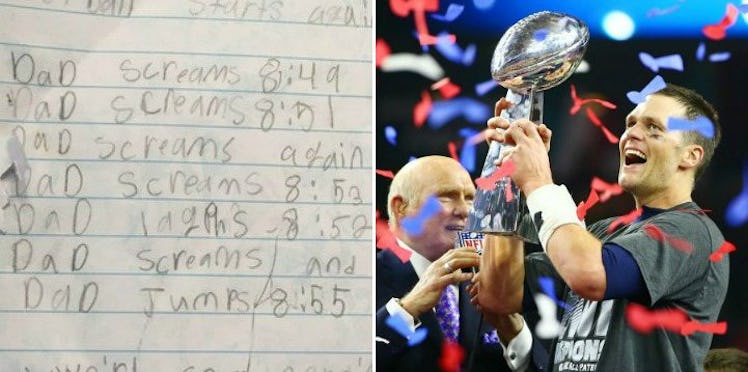 starts again
DaD screams 8:49
DaD screams 8:51
DaD screams again
DaD screams 8:53
DaD
DaD screams and
DaD Jumps 8:55
NFL